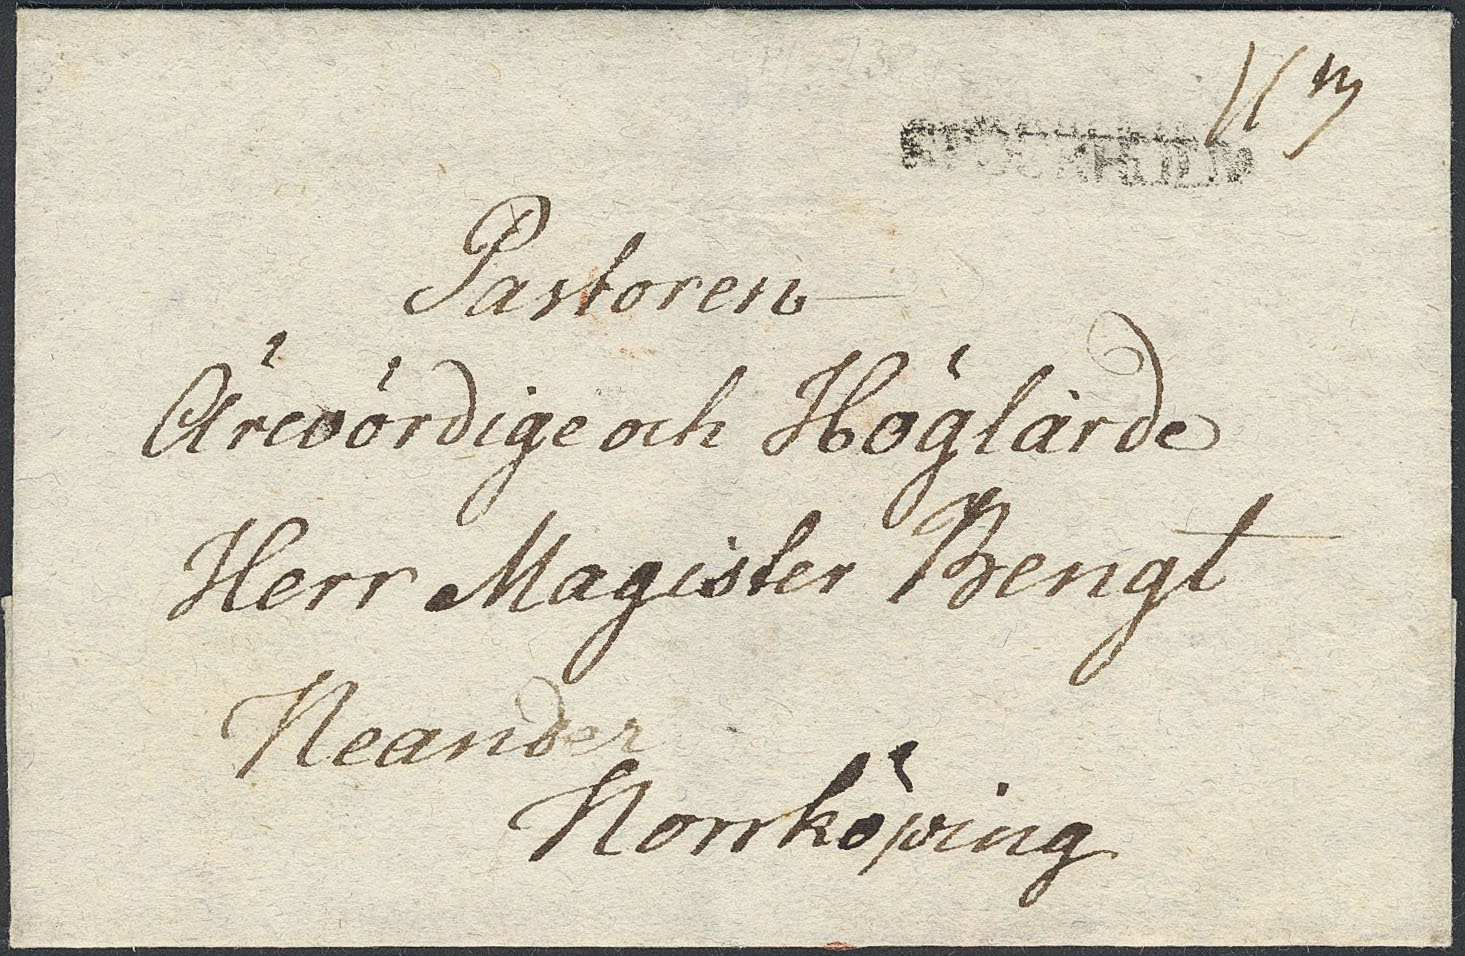 STOCKHOLM
Pastoren
Ärevördige och Höglärde
Herr Magister Bengt
Neander
Norrköping